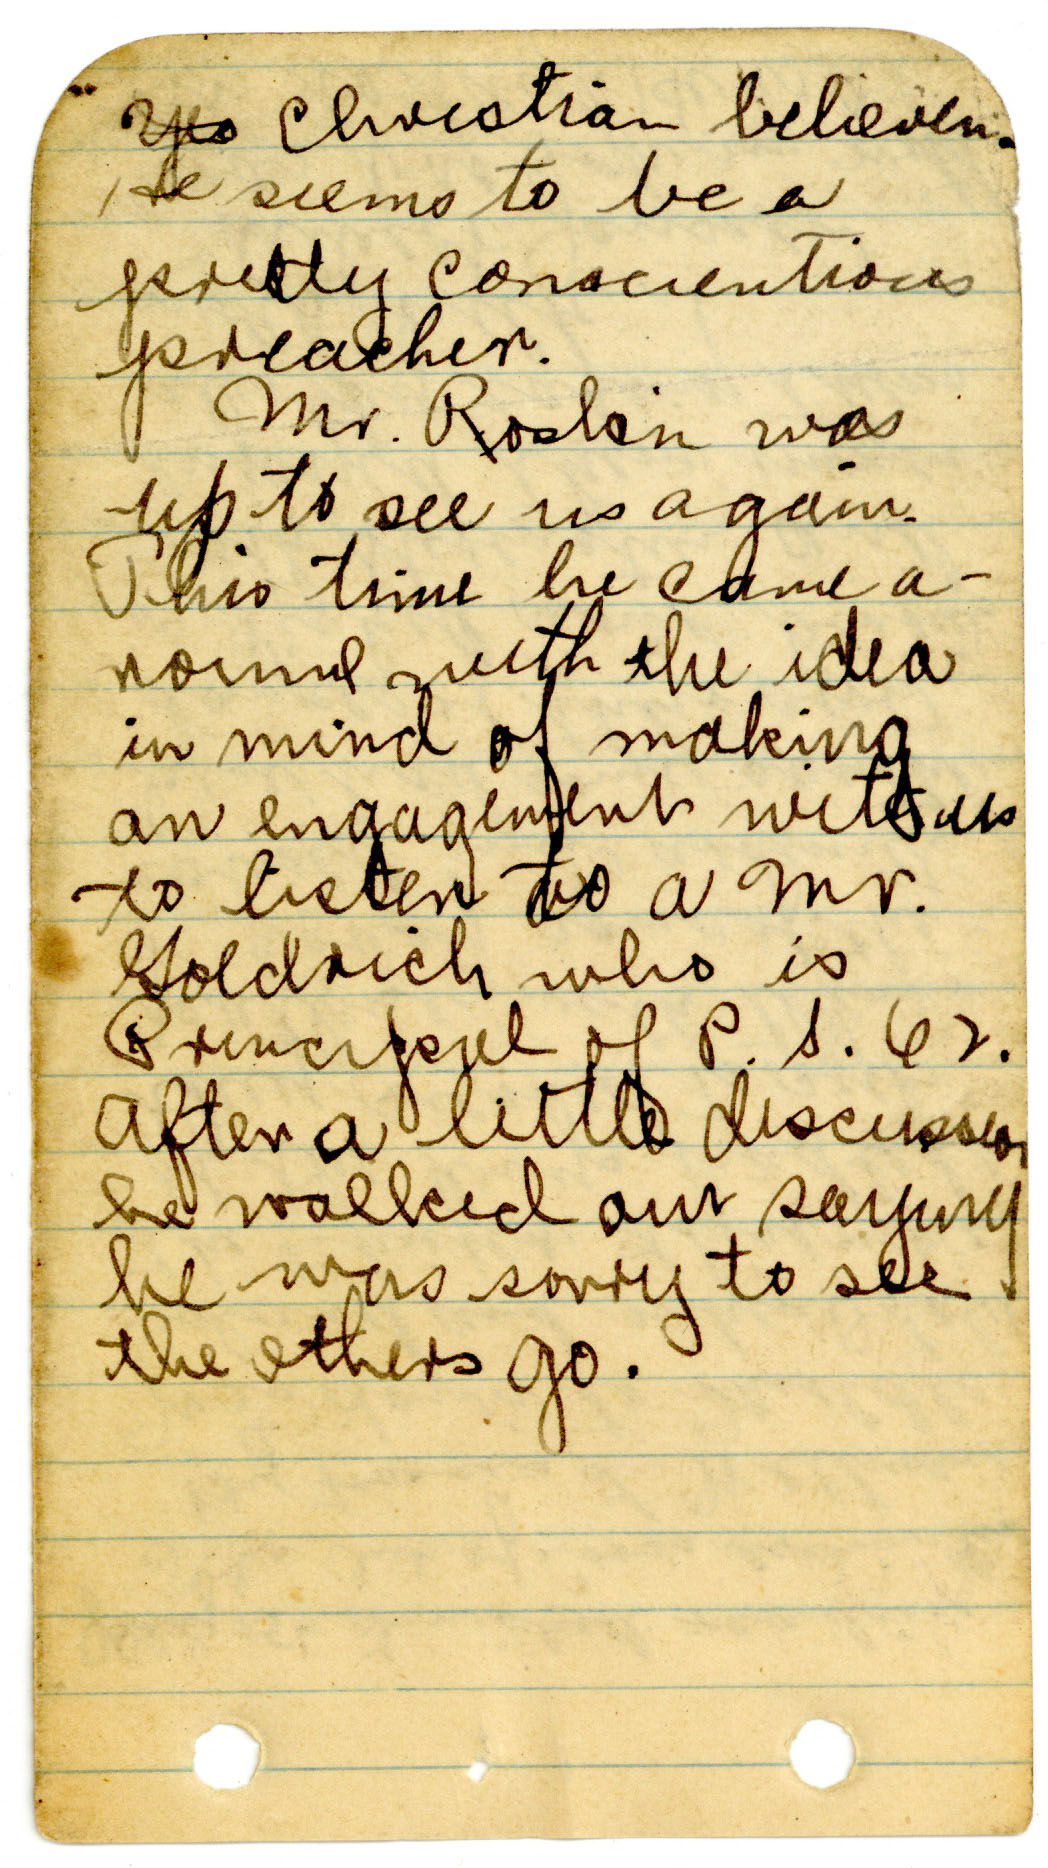 Yes Christian believer.
He seems to be a
pretty conscientious
preacher.
Mr. Roskin was
up to see us again.
This time he came a-
round with the idea
in mind of making
an engagement with us
to listen to a Mr.
Goldrich who is
Principal of P. S. 62.
After a little discussion
he walked out saying
he was sorry to see
the others go.